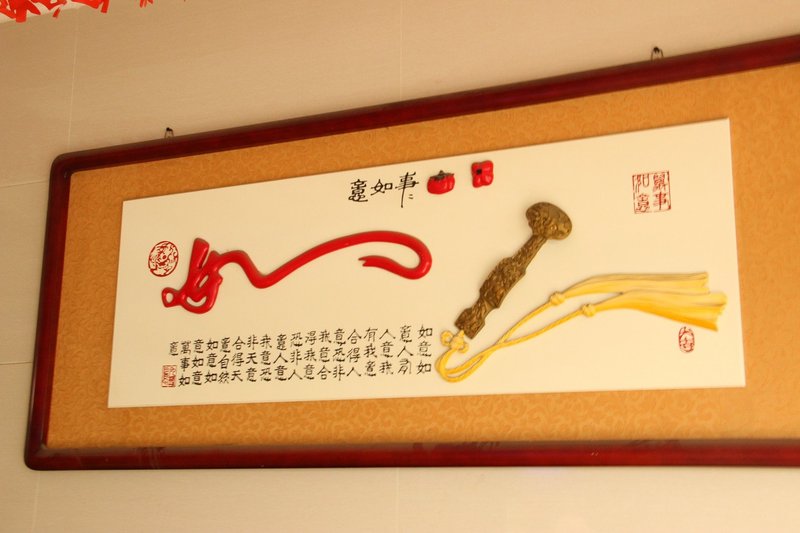 事〻如意
萬事
如意
如意如
意人有
人意我
有我意
合得人
意恐非
我意合
得我意
恐非人
意人意
我意恐
非天意
合得天
意自然
如意如
意如意
萬事如
意